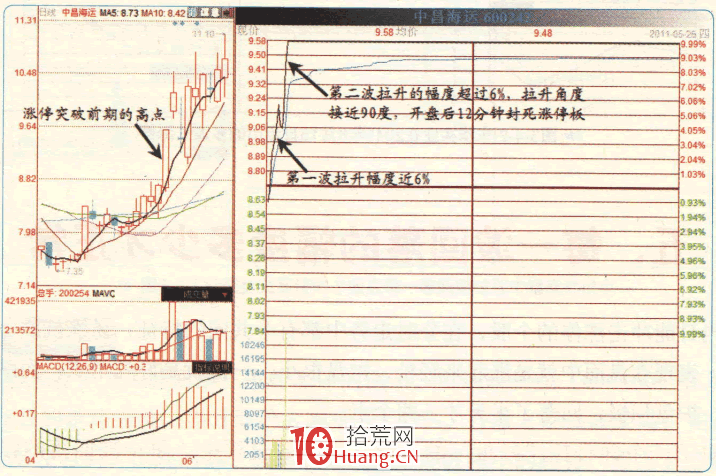 日线 中昌海运 MA5: 8.73 MA10: 8.42
11.31
11.10
10.48
9.64
8.82
7.98
7.14
7.35
涨停突破前期的高点
总手: 200254 MAVC
成交量
421935
213572
MACD(12,26,9) MACD: +0.3
指标说明
+0.64
+0.17
04
06
中昌海运 60024
现价
9.58 均价
9.48
2011-05-26 四
9.58
9.50
9.41
9.32
9.24
9.15
9.06
8.98
8.89
8.80
8.63
8.54
8.45
8.37
8.28
8.19
8.11
8.02
7.93
7.84
18245
16195
14144
12200
10249
8097
6154
4103
2051
9.99%
9.03%
8.03%
7.06%
6.02%
5.05%
4.05%
3.04%
2.04%
1.03%
0.93%
1.94%
2.94%
3.95%
4.96%
5.96%
6.92%
7.93%
8.93%
9.99%
第二波拉升的幅度超过6%，拉升角度
接近90度，开盘后12分钟封死涨停板
第一波拉升幅度近6%
10 拾荒网
Huang.CN